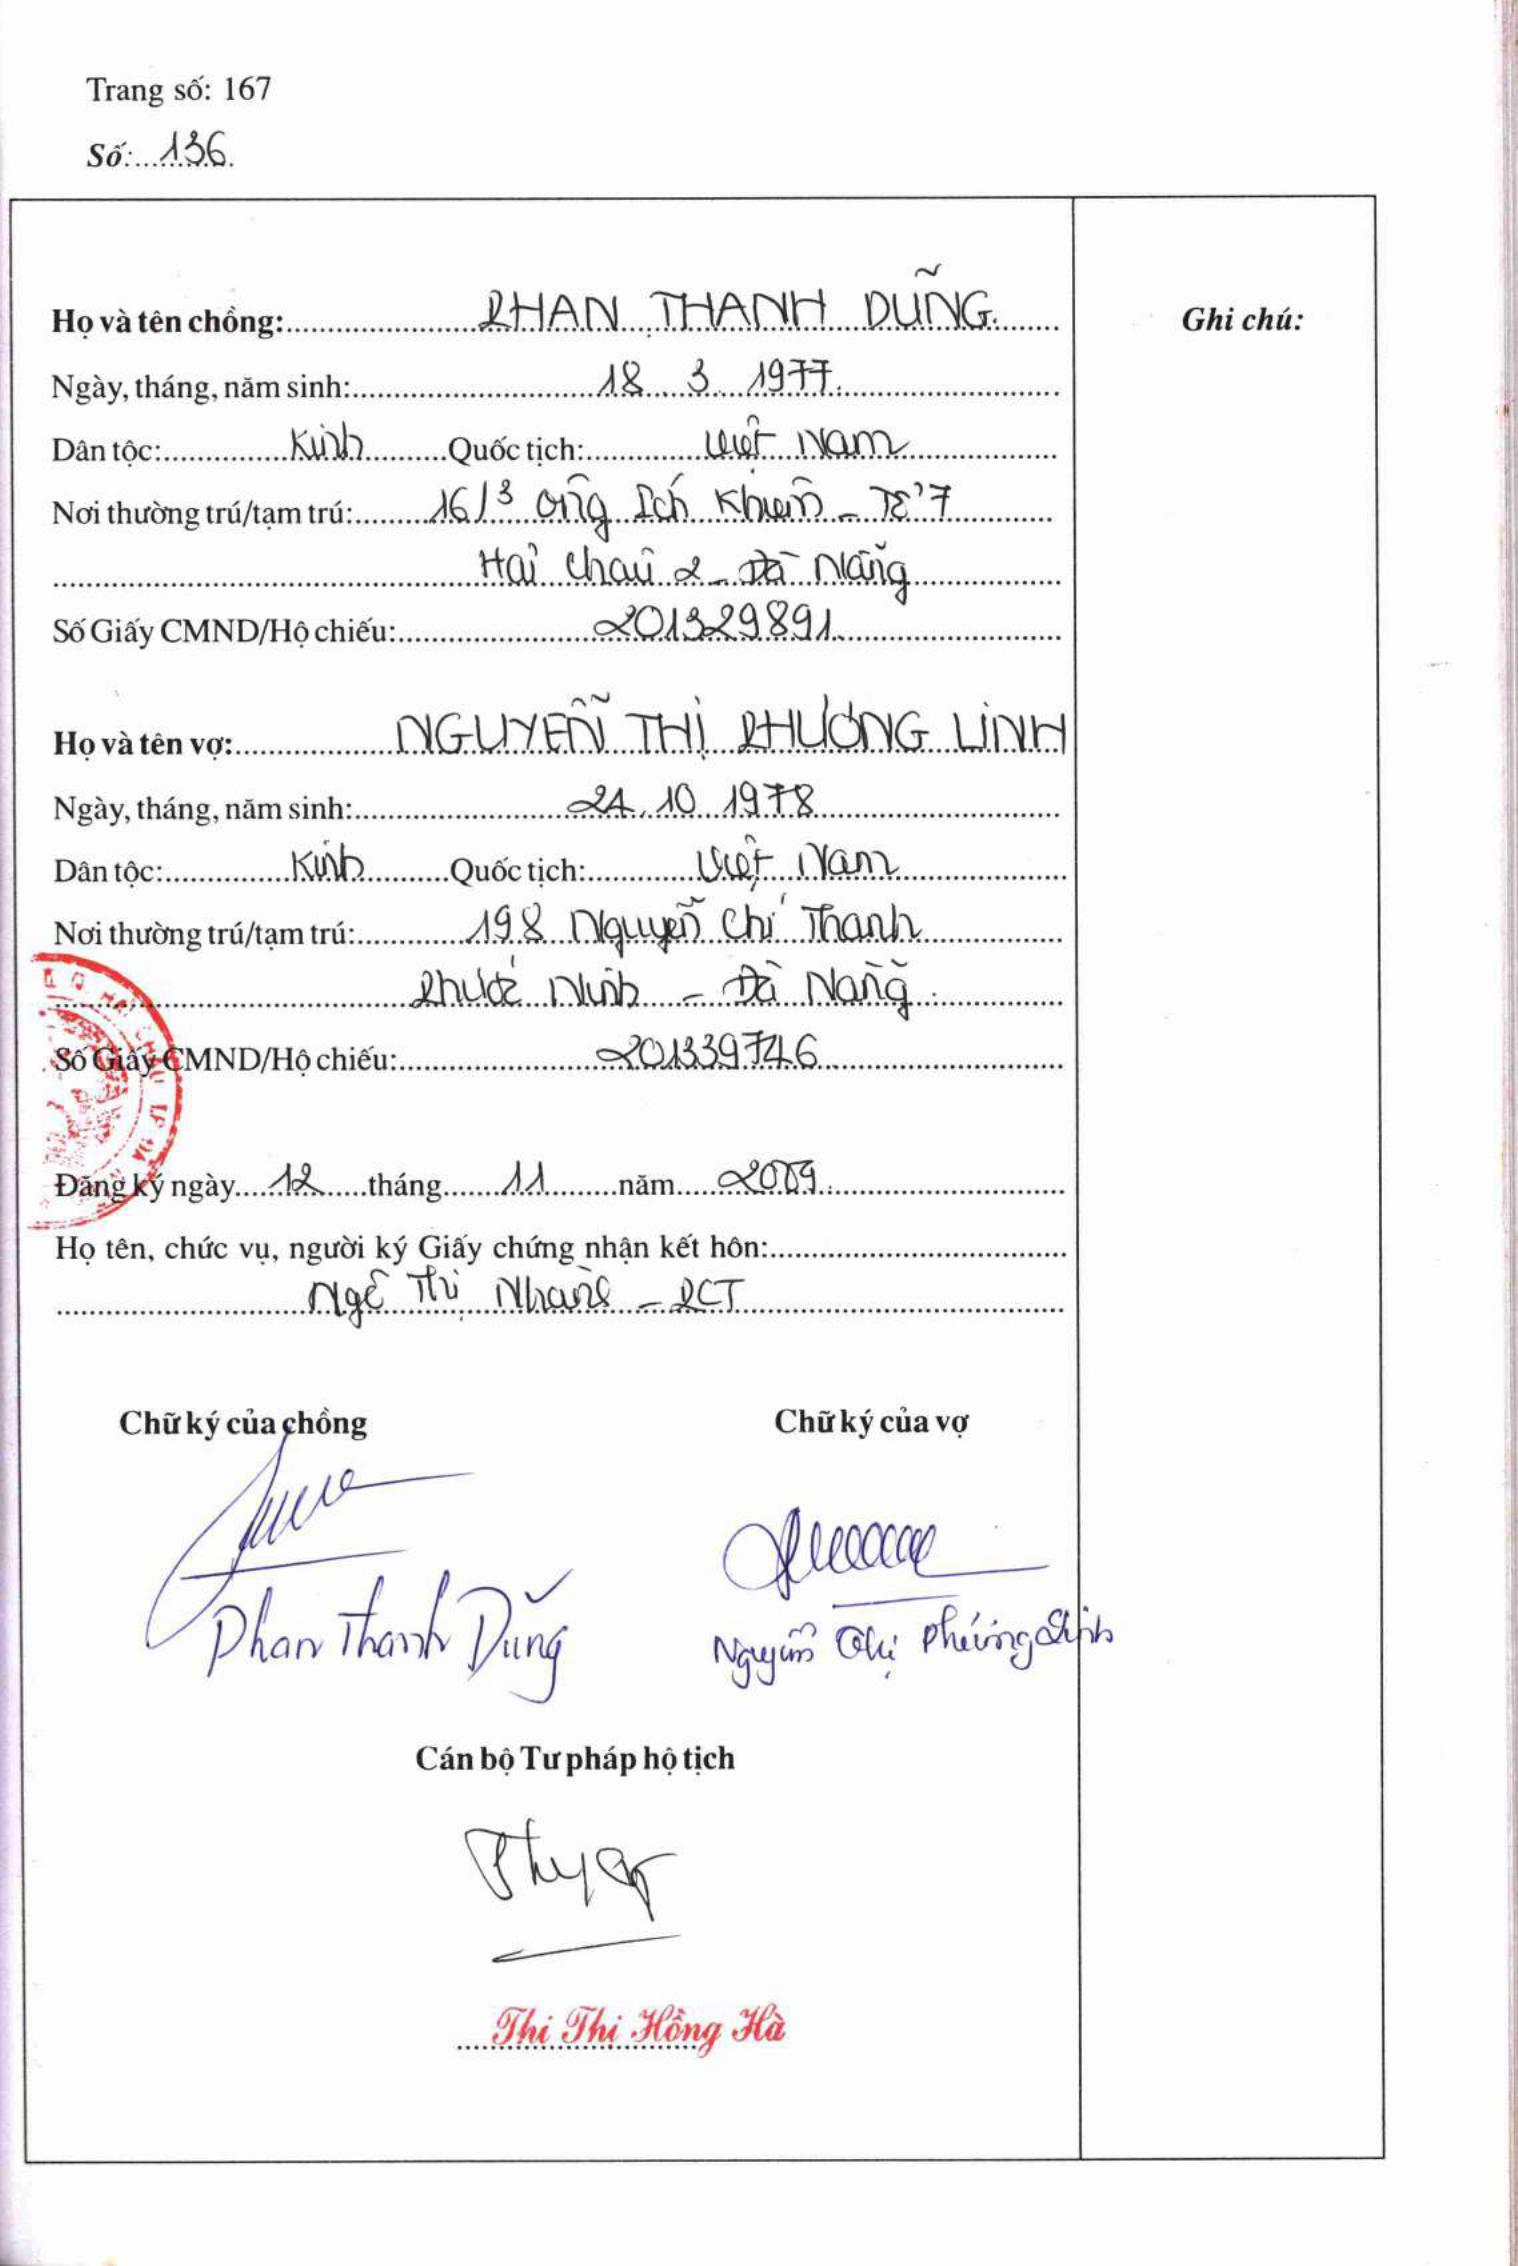 Trang số: 167
Số: 136.
Họ và tên chồng: PHAN THANH DŨNG.
Ghi chú:
Ngày, tháng, năm sinh: 18 3 1977.
Dân tộc: Kinh Quốc tịch: Việt Nam
Nơi thường trú/tạm trú: 16/3 Ông Ích Khiêm - Tổ 7
Hải Châu 2 - Đà Nẵng
Số Giấy CMND/Hộ chiếu: 201329891
Họ và tên vợ: NGUYỄN THỊ PHƯƠNG LINH
Ngày, tháng, năm sinh: 24. 10 1978
Dân tộc: Kinh Quốc tịch: Việt Nam
Nơi thường trú/tạm trú: 198 Nguyễn Chí Thanh
Phước Ninh - Đà Nẵng.
Số Giấy CMND/Hộ chiếu: 201339746
Đăng ký ngày 12 tháng 11 năm 2009.
Họ tên, chức vụ, người ký Giấy chứng nhận kết hôn:
Thị - PCT
Chữ ký của chồng Chữ ký của vợ
Phan Thanh Dũng Nguyễn Thị Phương Linh
Cán bộ Tư pháp hộ tịch
Thi Thị Hồng Hà